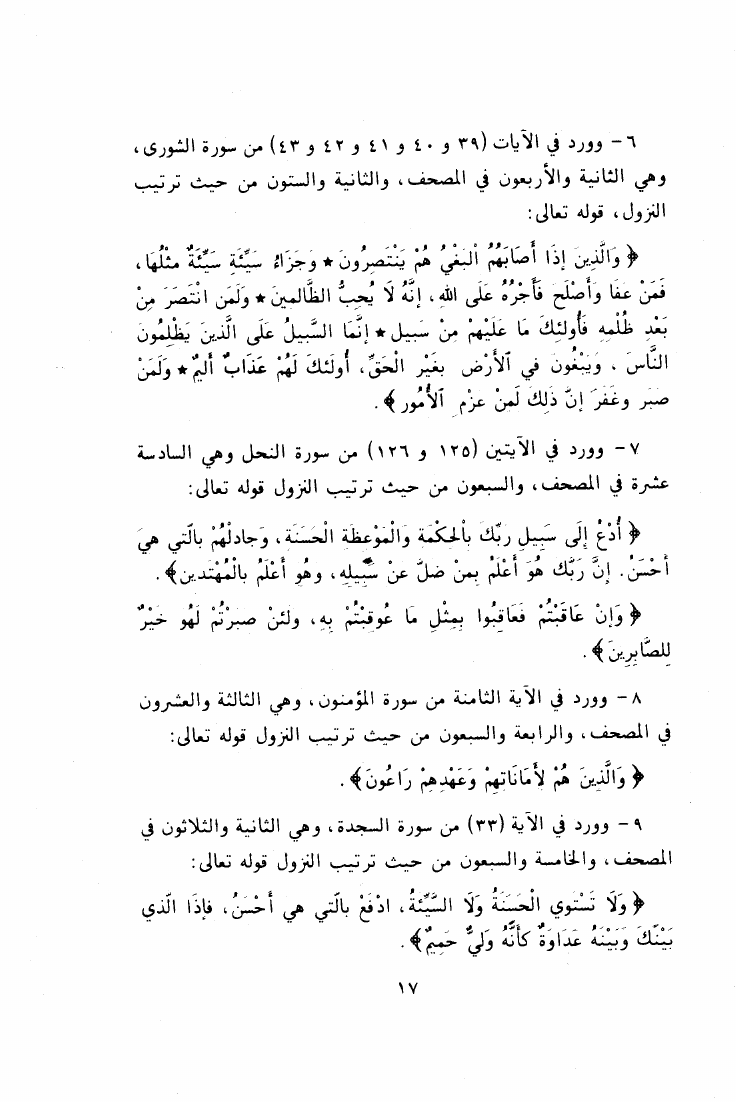 ٦ - وورد في الآيات (٣٩ و ٤٠ و ٤١ و ٤٢ و ٤٣) من سورة الشورى،
وهي الثانية والأربعون في المصحف، والثانية والستون من حيث ترتيب
النزول، قوله تعالى:
﴿ وَالَّذِينَ إِذَا أَصَابَهُمُ الْبَغْيُ هُمْ يَنْتَصِرُونَ ★ وَجَزَاءُ سَيِّئَةٍ سَيِّئَةٌ مثْلُهَا،
فَمَنْ عَفَا وَأَصْلَحَ فَأَجْرُهُ عَلى اللهِ، إِنَّهُ لَا يُحِبُّ الظَّالمينَ ★ وَلَمن انْتَصَرَ مِنْ
بَعْد ظُلْمِهِ فَأُولئِكَ مَا عَلَيْهِمْ مِنْ سَبيل ★ إنَّمَا السَّبيلُ عَلَى الَّذينَ يَظْلِمُونَ
النَّاسَ ، وَيَبْغُون في الأَرْض بغَيْر الْحَقِّ، أُولَئكَ لَهُمْ عَذَابٌ أليمٌ ★ وَلَمَنْ
صبَر وغَفَرَ إنَّ ذَلِكَ لَمنْ عزْمِ الأُمُور ﴾ .
٧ - وورد في الآيتين (١٢٥ و ١٢٦) من سورة النحل وهي السادسة
عشرة في المصحف، والسبعون من حيث ترتيب النزول قوله تعالى:
﴿ أُدْعُ إلَى سَبِيلِ رَبِّكَ بالحكْمَة وَالْمَوْعظَة الْحَسَنَة، وَجَادلْهُمْ بالَّتي هيَ
أَحْسَنُ. إنَّ رَبَّكَ هُوَ أَعْلَمُ بِمنْ ضلَّ عنْ سَبيلِهِ، وهُو أَعْلَمُ بالْمُهْتَدين﴾ .
﴿ وَإنْ عَاقَبْتُمْ فَعَاقِبُوا بِمثْلِ مَا عُوقِبْتُمْ بِهِ، ولَئنْ صبَرْتُمْ لَهُو خَيْرٌ
لِلصَّابِرِينَ﴾ .
٨ - وورد في الآية الثامنة من سورة المؤمنون، وهي الثالثة والعشرون
في المصحف، والرابعة والسبعون من حيث ترتيب النزول قوله تعالى:
﴿ وَالَّذِينَ هُمْ لأَمَانَاتِهِمْ وَعَهْدِهِمْ رَاعُونَ﴾ .
٩ - وورد في الآية (٣٣) من سورة السجدة، وهي الثانية والثلاثون في
المصحف، والخامسة والسبعون من حيث ترتيب النزول قوله تعالى:
﴿ وَلَا تَسْتَوي الْحَسَنَةُ وَلَا السَّيِّئَةُ، ادْفَعْ بالَّتي هي أَحْسَنُ، فإذَا الّذي
بَيْنَكَ وَبَيْنَهُ عَدَاوَةٌ كَأَنَّهُ وَليٌّ حَمِيمٌ﴾ .
١٧